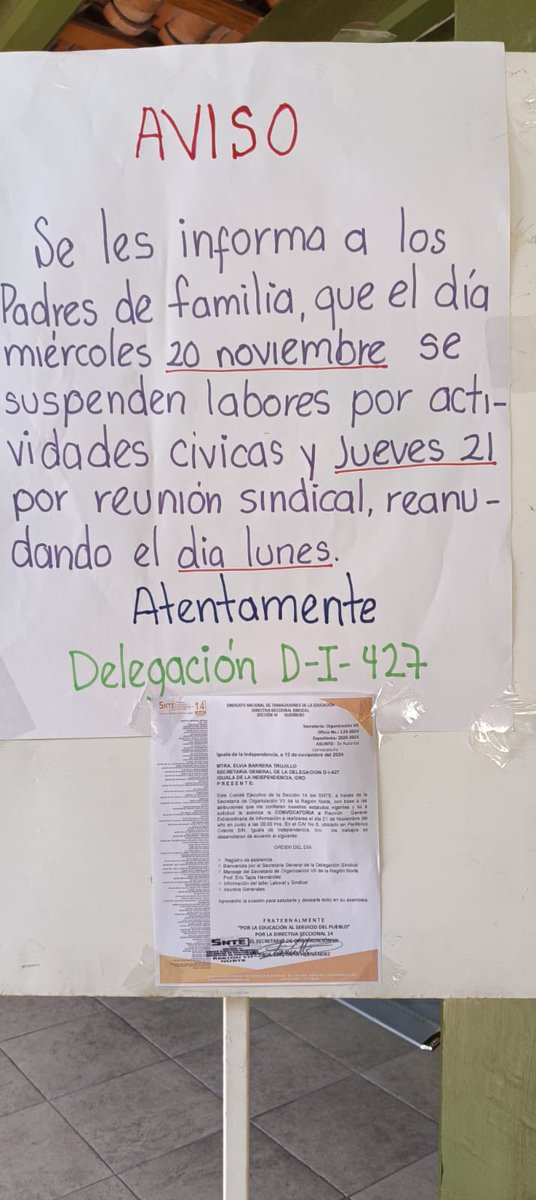 AVISO
Se les informa a los
Padres de familia, que el día
miércoles 20 noviembre se
suspenden labores por acti-
vidades civicas y Jueves 21
por reunión sindical, reanu-
dando el dia lunes.
Atentamente
Delegación D-I-427
SNTE 14
SINDICATO NACIONAL DE TRABAJADORES DE LA EDUCACIÓN
DIRECTIVA SECCIONAL SINDICAL
SECCIÓN 14 GUERRERO
Secretaría: Organización VII
Oficio No.: 133-2024
Expediente: 2024-2025
ASUNTO: Se Autoriza
convocatoria
Iguala de la Independencia, a 13 de noviembre del 2024
MTRA. ELVIA BARRERA TRUJILLO
SECRETARIA GENERAL DE LA DELEGACION D-I-427
IGUALA DE LA INDEPENDENCIA, GRO
P R E S E N T E.
Este Comité Ejecutivo de la Sección 14 del SNTE, a través de la
Secretaría de Organización VII de la Región Norte, con base a las
atribuciones que me confieren nuestros estatutos vigentes y es a
solicitud la autoriza la CONVOCATORIA a Reunión General
Extraordinaria de información a realizarse el día 21 de Noviembre del
año en curso a las 09:00 Hrs. En el CAI No 6, ubicado en Periférico
Oriente S/N, Iguala de Independencia, Gro. los trabajos se
desarrollaran de acuerdo al siguiente:
ORDEN DEL DIA
Registro de asistencia.
Bienvenida por el Secretaria General de la Delegación Sindical
Mensaje del Secretario de Organización VII de la Región Norte
Prof. Eric Tapia Hernández
Información del taller Laboral y Sindical
Asuntos Generales
Aprovecho la ocasión para saludarle y desearle éxito en su asamblea.
F R A T E R N A L M E N T E
"POR LA EDUCACIÓN AL SERVICIO DEL PUEBLO"
POR LA DIRECTIVA SECCIONAL 14
EL SECRETARIO DE ORGANIZACIÓN VII
SNTE
REGIÓN VII
NORTE
PROF. ERIC TAPIA HERNÁNDEZ